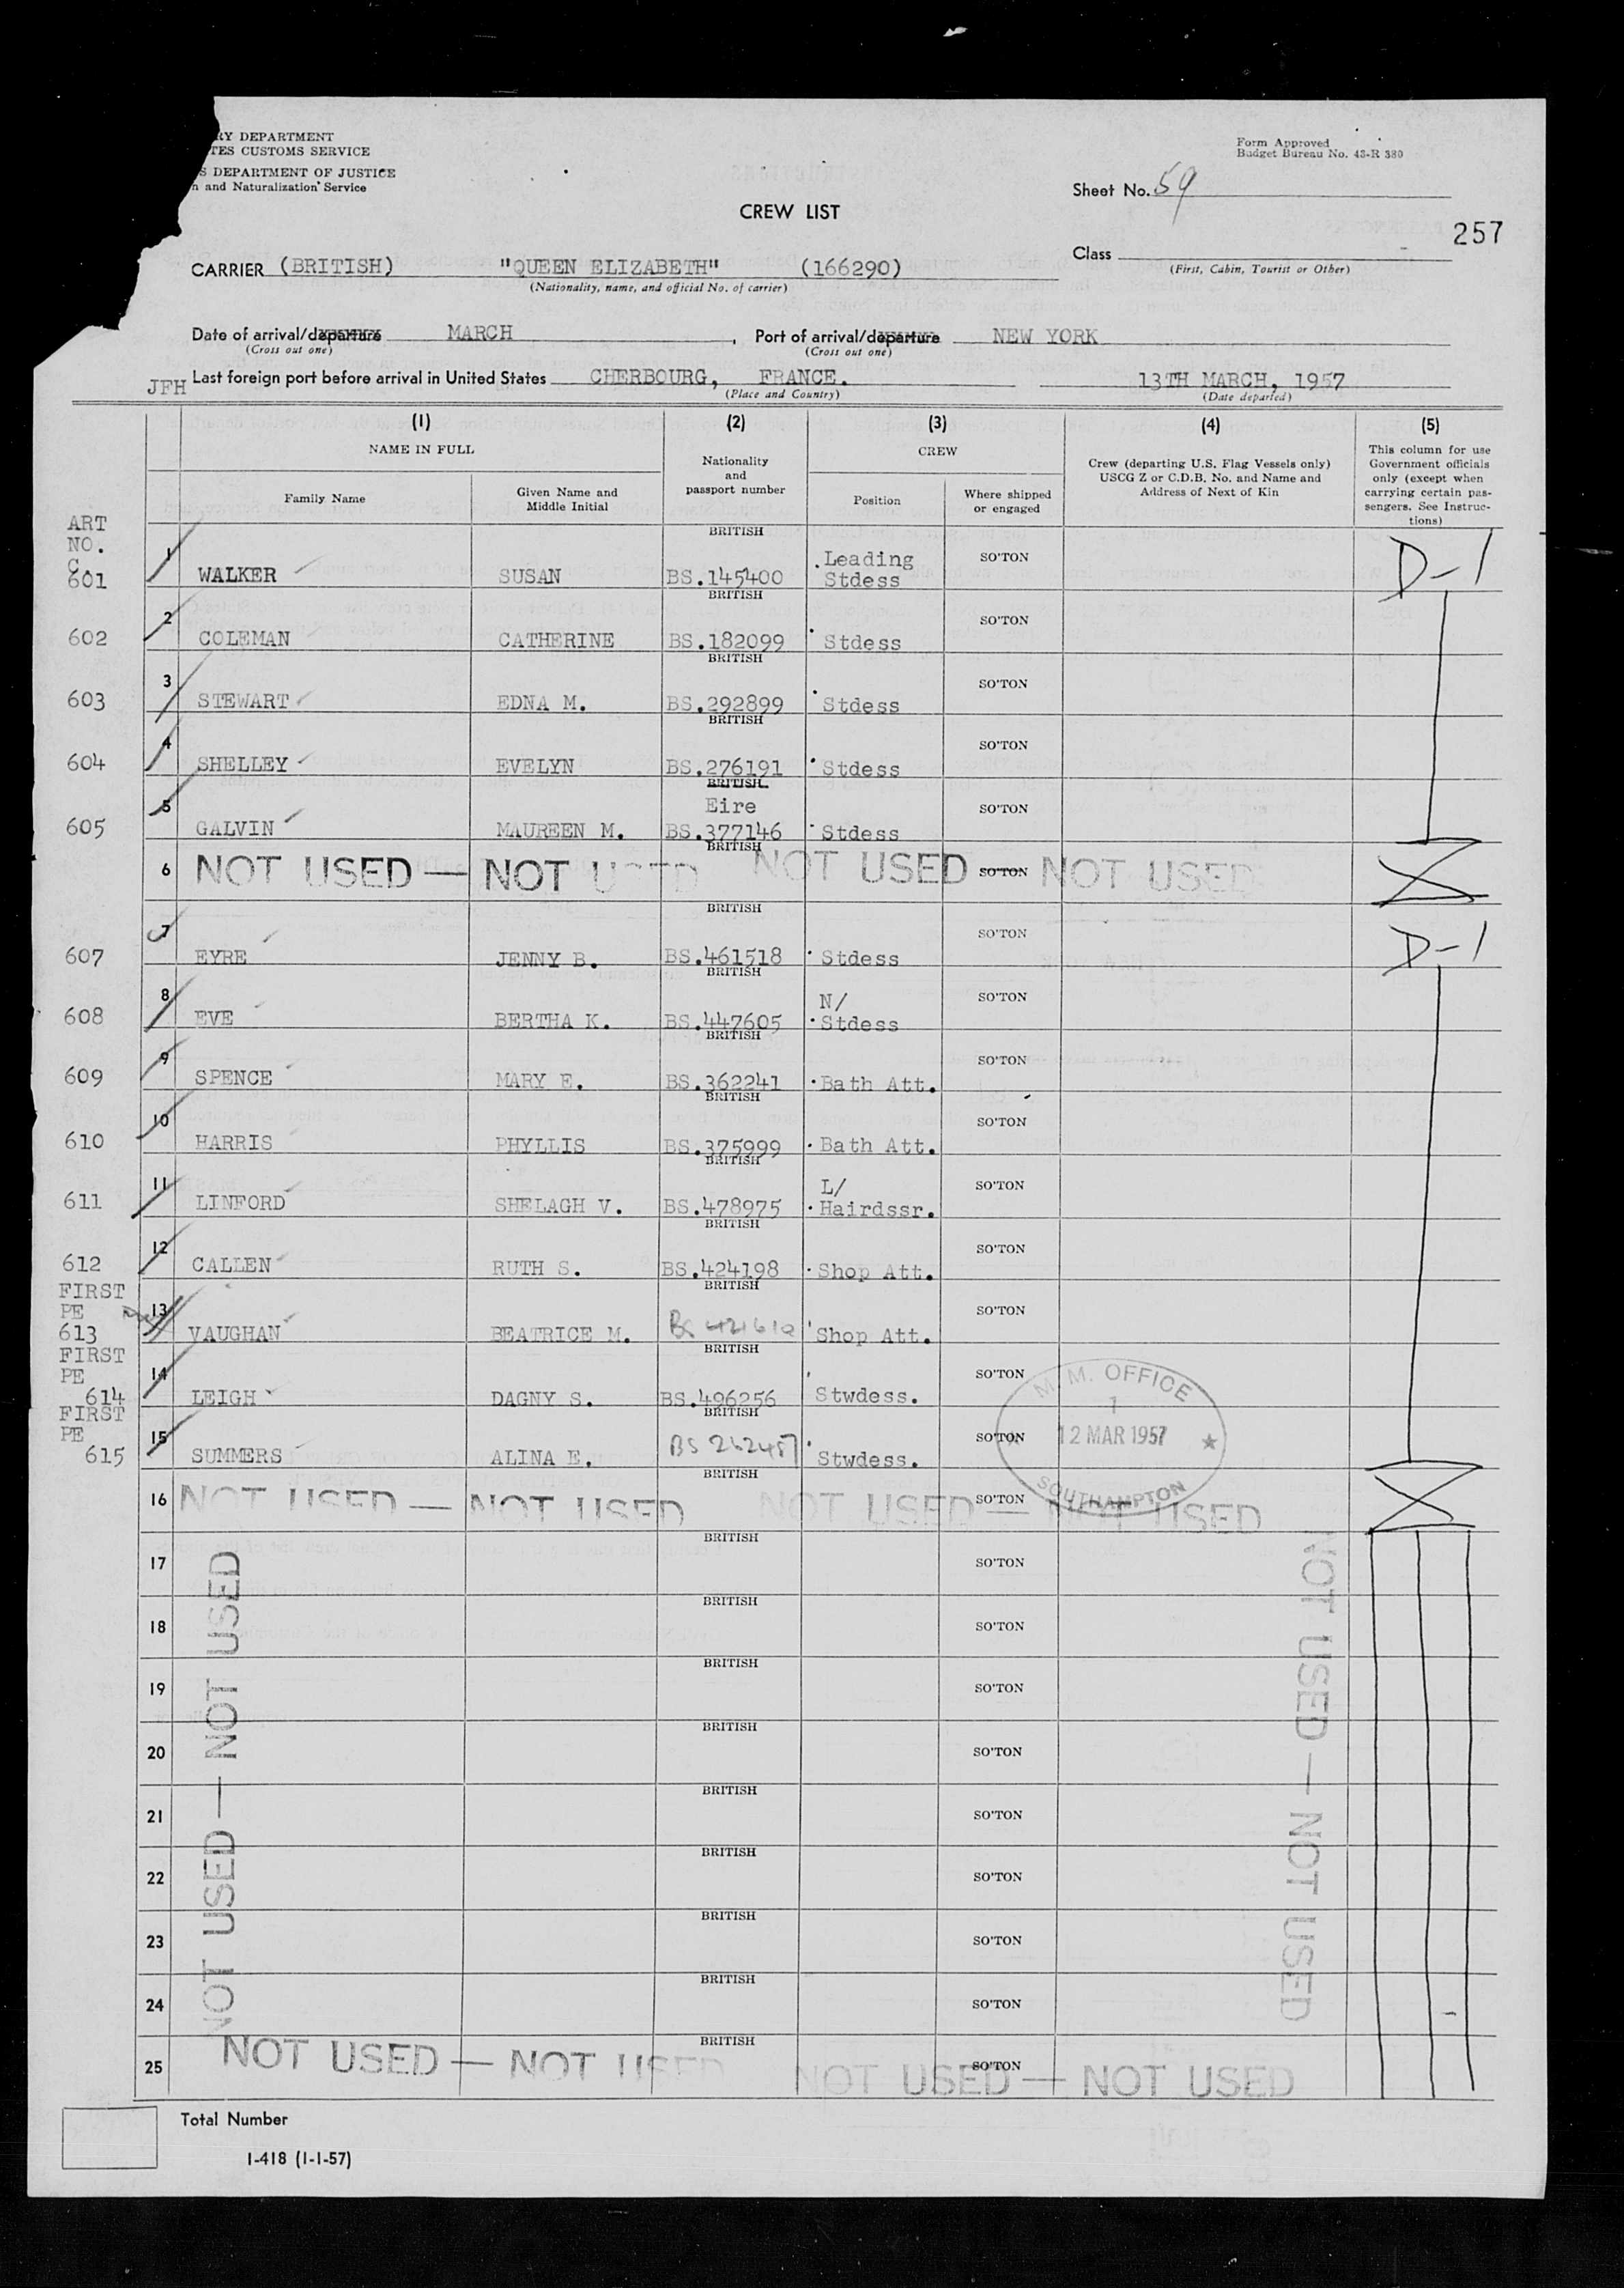 RY DEPARTMENT
TES CUSTOMS SERVICE
S DEPARTMENT OF JUSTICE
n and Naturalization Service
Form Approved
Budget Bureau No. 43-R 380
Sheet No. 59
CREW LIST
257
Class
(First, Cabin, Tourist or Other)
CARRIER (BRITISH) "QUEEN ELIZABETH" (166290)
(Nationality, name, and official No. of carrier)
Date of arrival/departure MARCH , Port of arrival/departure NEW YORK
(Cross out one) (Cross out one)
JFH Last foreign port before arrival in United States CHERBOURG, FRANCE. 13TH MARCH, 1957
(Place and Country) (Date departed)
(1) (2) (3) (4) (5)
NAME IN FULL
Family Name
Given Name and
Middle Initial
Nationality
and
passport number
CREW
Position
Where shipped
or engaged
Crew (departing U.S. Flag Vessels only)
USCG Z or C.D.B. No. and Name and
Address of Next of Kin
This column for use
Government officials
only (except when
carrying certain pas-
sengers. See Instruc-
tions)
ART
NO.
C.
BRITISH
601 1 WALKER SUSAN BS.145400 Leading Stdess SO'TON D-1
BRITISH
602 2 COLEMAN CATHERINE BS.182099 Stdess SO'TON
BRITISH
603 3 STEWART EDNA M. BS.292899 Stdess SO'TON
BRITISH
604 4 SHELLEY EVELYN BS.276191 Stdess SO'TON
BRITISH
Eire
605 5 GALVIN MAUREEN M. BS.377146 Stdess SO'TON
BRITISH
6 NOT USED — NOT USED NOT USED SO'TON NOT USED
BRITISH
607 7 EYRE JENNY B. BS.461518 Stdess SO'TON D-1
BRITISH
608 8 EVE BERTHA K. BS.447605 N/ Stdess SO'TON
BRITISH
609 9 SPENCE MARY E. BS.362241 Bath Att. SO'TON
BRITISH
610 10 HARRIS PHYLLIS BS.375999 Bath Att. SO'TON
BRITISH
611 11 LINFORD SHELAGH V. BS.478975 L/ Hairdssr. SO'TON
BRITISH
612 12 CALLEN RUTH S. BS.424198 Shop Att. SO'TON
FIRST
PE
BRITISH
613 13 VAUGHAN BEATRICE M. BS Shop Att. SO'TON
FIRST
PE
BRITISH
614 14 LEIGH DAGNY S. BS.496256 Stwdess. SO'TON
FIRST
PE
BRITISH
615 15 SUMMERS ALINA E. BS 262457 Stwdess. SO'TON
M. M. OFFICE
1
12 MAR 1957
SOUTHAMPTON
BRITISH
16 NOT USED — NOT USED NOT USED SO'TON — NOT USED
BRITISH
17 SO'TON
BRITISH
18 SO'TON
BRITISH
19 SO'TON
BRITISH
20 SO'TON
BRITISH
21 SO'TON
BRITISH
22 SO'TON
BRITISH
23 SO'TON
BRITISH
24 SO'TON
BRITISH
25 NOT USED — NOT USED NOT USED SO'TON — NOT USED
NOT USED — NOT USED
NOT USED — NOT USED
Total Number
I-418 (1-1-57)